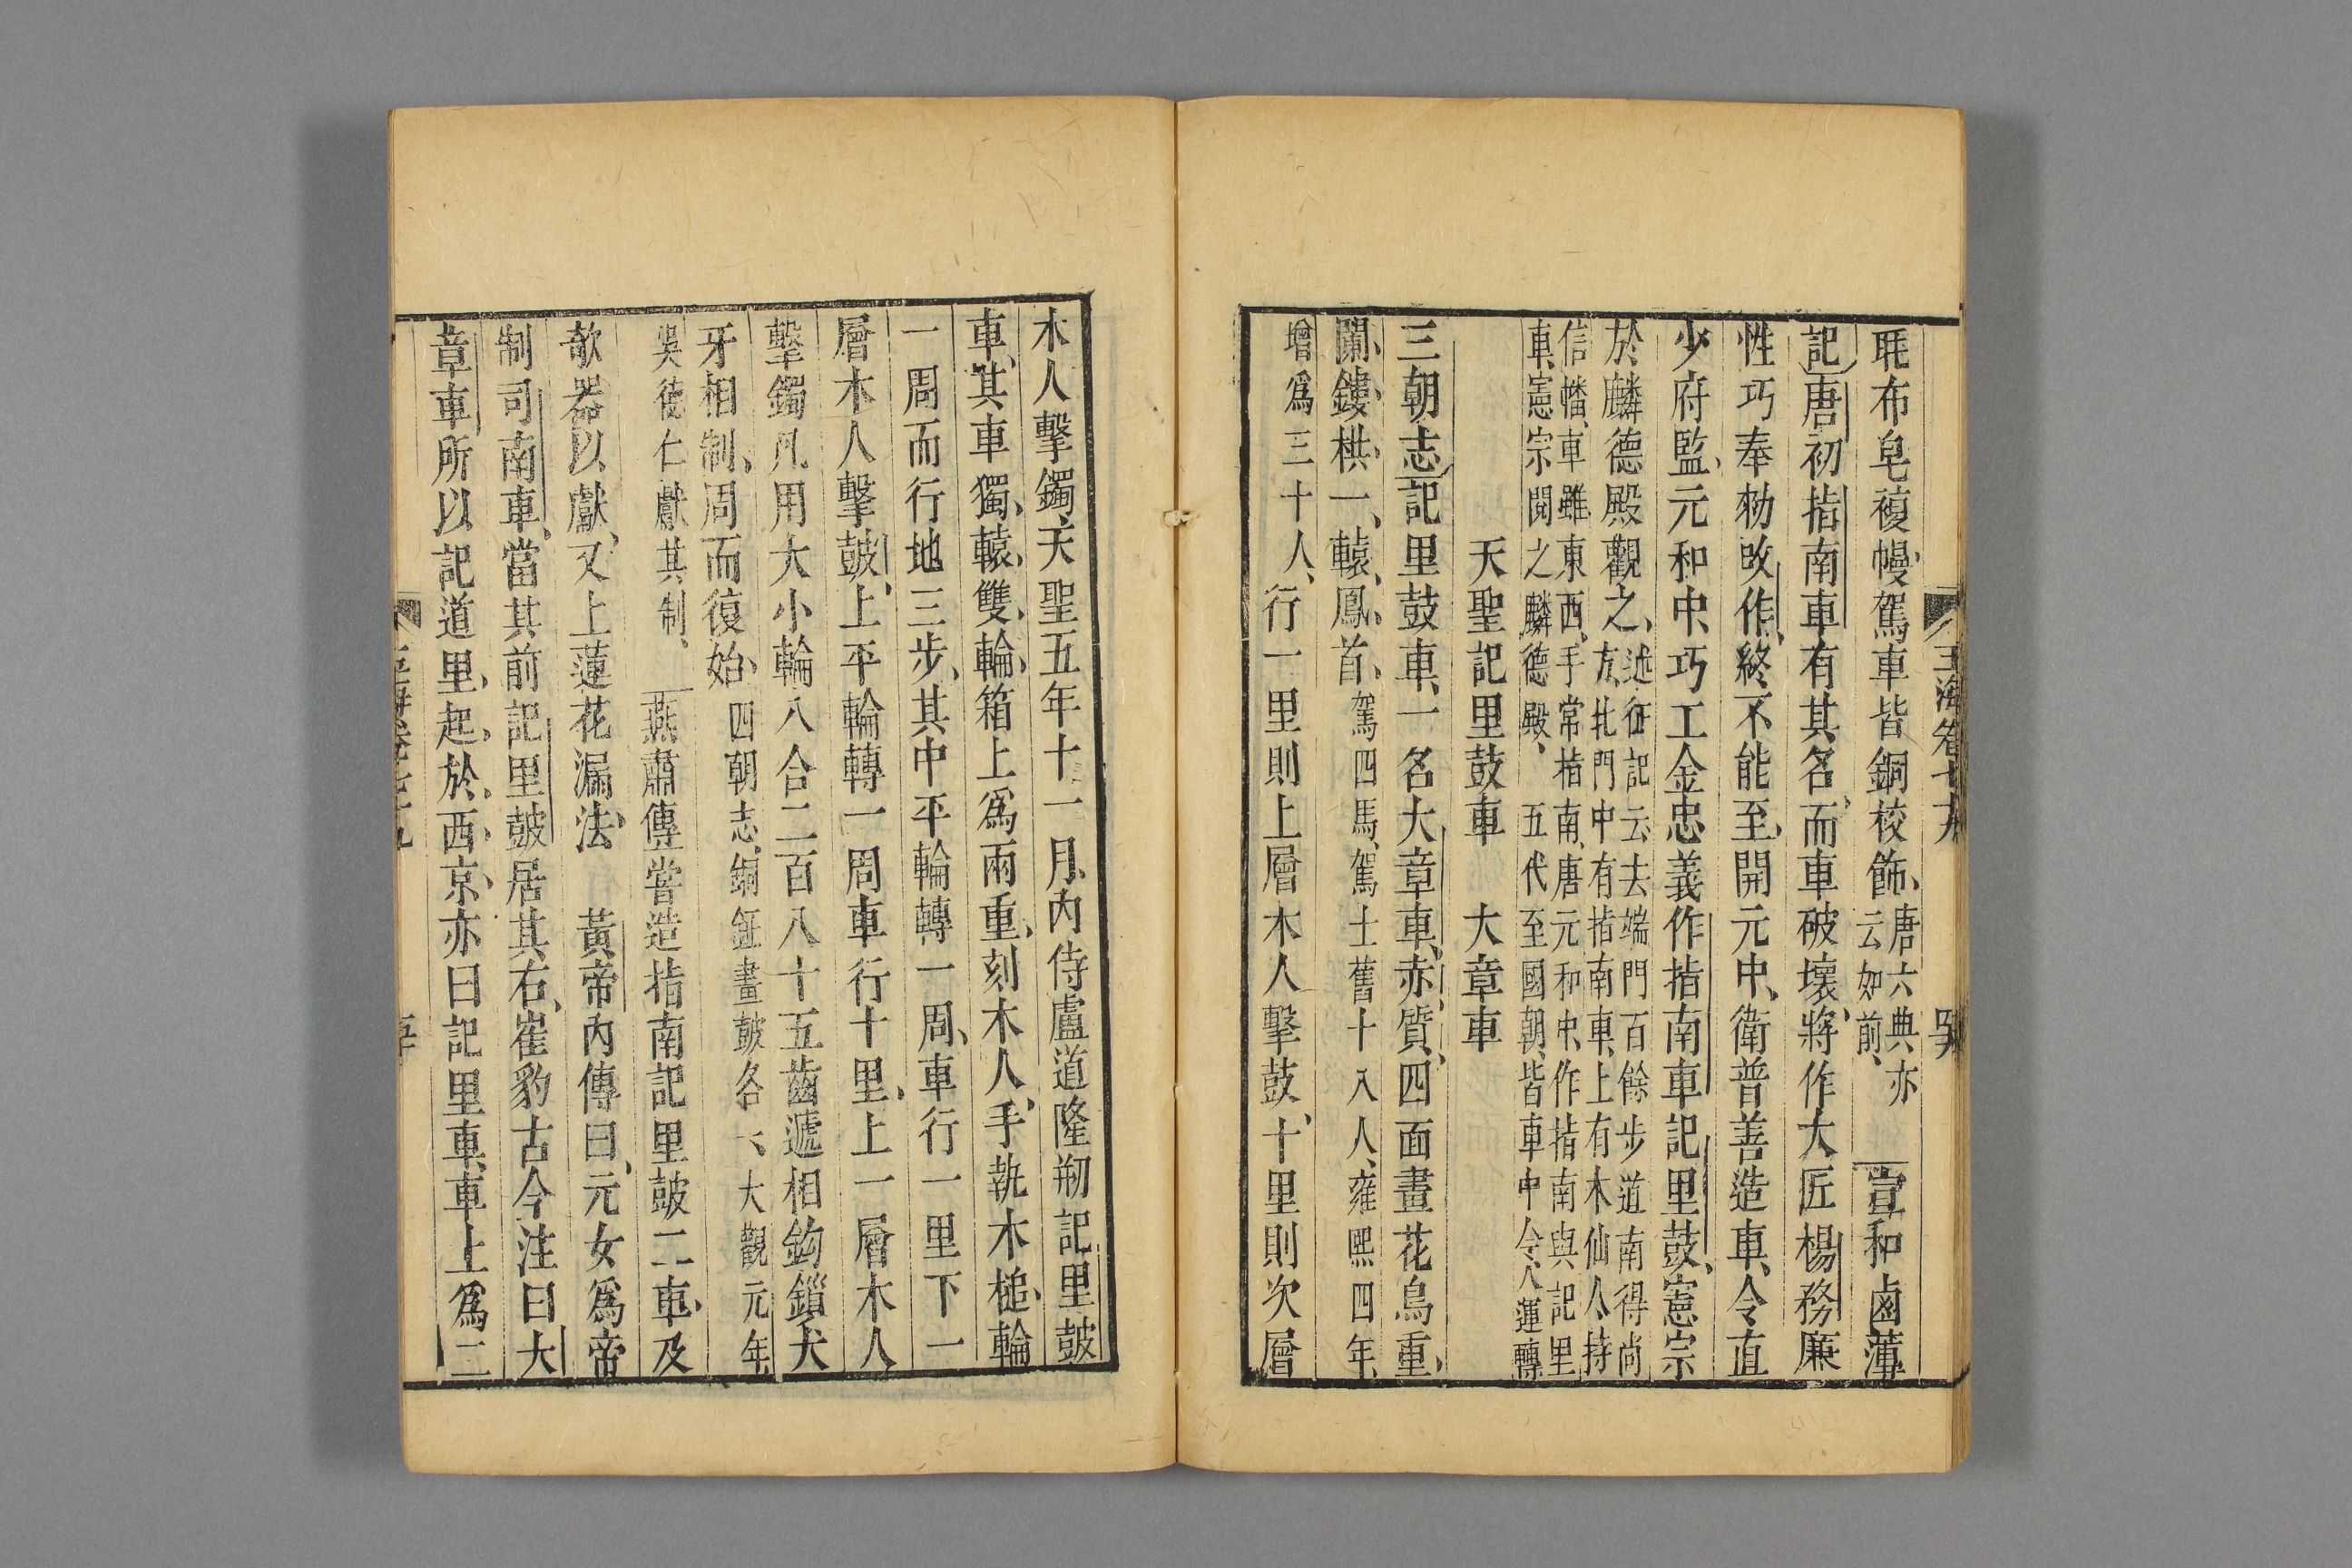 玉海卷七十九
毦布皂複幰駕車皆銅校飾唐六典亦云如前宣和鹵簿
記唐初指南車有其名而車破壞將作大匠楊務廉
性巧奉勑改作終不能至開元中衛普善造車令直
少府監元和中巧工金忠義作指南車記里鼓憲宗
於麟德殿觀之述征記云去端門百餘步道南得尚方北門中有指南車上有木仙人持
信幡車雖東西手常指南唐元和中作指南與記里車憲宗閱之麟德殿五代至國朝皆車中令人運轉
天聖記里鼓車 大章車
三朝志記里鼓車一名大章車赤質四面畫花鳥重
闌鏤栱一轅鳳首駕四馬駕士舊十八人雍熙四年
增爲三十人行一里則上層木人擊鼓十里則次層
木人擊鐲天聖五年十一月內侍盧道隆刱記里鼓
車其車獨轅雙輪箱上爲兩重刻木人手執木槌輪
一周而行地三步其中平輪轉一周車行一里下一
層木人擊鼓上平輪轉一周車行十里上一層木人
擊鐲凡用大小輪八合二百八十五齒遞相鉤鎖犬
牙相制周而復始四朝志銅鉦畫鼓各一大觀元年
吳德仁獻其制燕肅傳嘗造指南記里鼓二車及
欹器以獻又上蓮花漏法 黃帝內傳曰元女爲帝
制司南車當其前記里鼓居其右崔豹古今注曰大
章車所以記道里起於西京亦曰記里車車上爲二